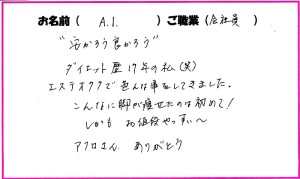 お名前( A.I. )ご職業(会社員)
"安かろう良かろう"
ダイエット歴17年の私(笑)
エステオタクで色んな事をしてきました。
こんなに脚が痩せたのは初めて!
しかも お値段やっすぃ〜
アフロさん ありがとう